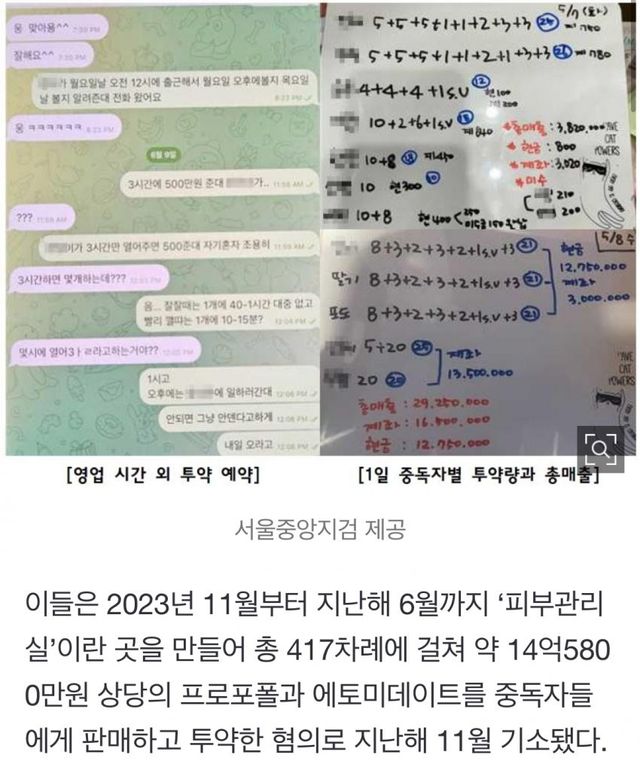 웅 맞아용^^ 7:39 PM
잘해요^^ 7:39 PM
가 월요일날 오전 12시에 출근해서 월요일 오후에볼지 목요일
날 볼지 알려준대 전화 왔어요 8:23 PM
웅 ㅋㅋㅋㅋㅋㅋ 8:23 PM
6월 9일
3시간에 500만원 준대 가.. 11:58 AM
??? 11:59 AM
이가 3시간만 열어주면 500준대 자기혼자 조용히 11:59 AM
3시간하면 몇개하는데???
음... 잘잘때는 1개에 40-1시간 대중 없고
빨리 깰따는 1개에 10-15분? 12:04 PM
몇시에 열어3ㅏㄹ라고하는거야??
1시고
오후에는 에 일하러간대 12:06 PM
안되면 그냥 안덴다고하게 12:06 PM
내일 모라고 12:06 PM
5/7 (화)
5+5+5+1+1+2+3+3
5+5+5+1+1+2+1+3+3 780
4+4+4+1s.v 12 현100
200
10+2+6+1s.v 제840
총매출 : 3,820,000
현금 : 800
제좌 : 3,020
미수
210
200
10+8
10 현300 10
10+8 현400
LOVE
CAT
POWERS
5/8 수
8+3+2+3+2+1s.v+3 21
딸기 8+3+2+3+2+1s.v+3 21
포도 8+3+2+3+2+1s.v+3 21
현금
12,750,000
계좌
3,000,000
5+20 25
20 20
계좌
13,500,000
총매출 : 29,250,000
계좌 : 16,500,000
현금 : 12,750,000
CAT
POWERS
[영업 시간 외 투약 예약]
[1일 중독자별 투약량과 총매출]
서울중앙지검 제공
이들은 2023년 11월부터 지난해 6월까지 ‘피부관리
실’이란 곳을 만들어 총 417차례에 걸쳐 약 14억580
0만원 상당의 프로포폴과 에토미데이트를 중독자들
에게 판매하고 투약한 혐의로 지난해 11월 기소됐다.